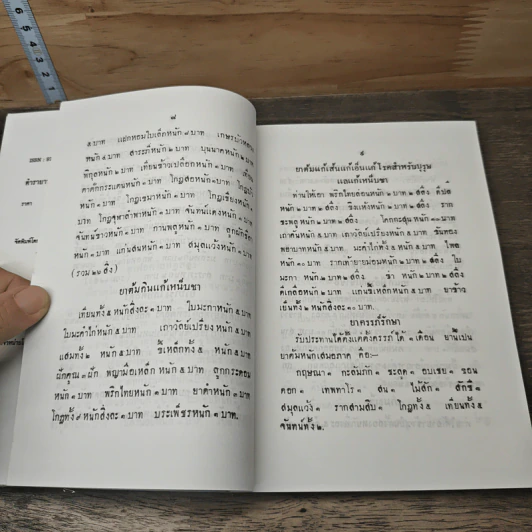 ๘
๕ บาท แฝกหอมใบเล็กหนัก ๙ บาท เกษรบัวหลวง
หนัก ๔ บาท สาระภี่หนัก ๒ บาท บุนนาคหนัก ๒ บาท
พิกุลหนัก ๒ บาท เทียนข้าวเปลือกหนัก ๑ บาท เทียน
ตาตั๊กกะแตนหนัก ๑ บาท โกฎสอหนัก ๑ บาท
หนัก ๑ บาท โกฎเขมาหนัก ๑ บาท โกฎเชียงหนัก
บาท โกฎจุฬาลำพาหนัก ๑ บาท จันทน์แดงหนัก ๑
จันทน์ขาวหนัก ๑ บาท กานพลูหนัก ๑ บาท
หนัก ๑ บาท แก่นสนหนัก ๑ บาท สมุลแว้งหนัก ๑
(รวม ๒๒ สิ่ง)
ยาต้มกินแก้เหน็บชา
เทียนทั้ง ๕ หนักสิ่งละ ๑ บาท ใบมะกาหนัก ๕ บาท
ใบมะคำไก่หนัก ๕ บาท เถาวัลย์เปรียงหนัก ๕ บาท
แสมทั้ง ๒ หนัก ๕ บาท ขี้เหล็กทั้ง ๕ หนัก ๕ บาท
ฝักคูณ ๓ ฝัก พญามือเหล็กหนัก ๕ บาท ลูกกระดอม
หนัก ๑ บาท พริกไทยหนัก ๑ บาท ยาดำหนัก ๑ บาท
โกฎทั้ง ๙ หนักสิ่งละ ๑ บาท
๙
ยาต้มแก้เส้นแก้เอ็นแก้โรคสำหรับบุรุษ
และแก้เหน็บชา
ท่านให้เอา พริกไทยล่อนหนัก ๒ บาท ๒ สลึง ดีปลี
หนัก ๒ บาท ๒ สลึง ขิงแห้งหนัก ๒ บาท ๒ สลึง ราก
ชะพลูหนัก ๒ บาท ๒ สลึง โคกกะสุนหนัก
เถาคันหนัก ๕ บาท เถาวัลย์เปรียงหนัก ๕ บาท ขันทอง
พยาบาทหนัก ๕ บาท มะคำไก่ทั้ง ๕ หนัก ๕ บาท ไพล
หนัก ๑๐ บาท รากเท้ายายม่อมหนัก ๒ บาท ๒ สลึง ใบ
มะกา หนัก ๒ บาท ๒ สลึง ข่า หนัก ๒ บาท ๒ สลึง
ดีเกลือหนัก ๑ บาท แก่นขี้เหล็กหนัก ๕ บาท ยาข้าว
เย็นทั้ง ๒ หนักสิ่งละ ๑๐ บาท
ยาครรภ์รักษา
รับประทานได้ตั้งแต่ตั้งครรภ์ได้ ๑ เดือน ยานี้เป็น
ยาต้มหนักเสมอภาค คือ:-
กฤษณา ๑ กะลำภัก ๑ ชะลูด ๑ อบเชย ๑ ขอน
ดอก ๑ เทพทาโร ๑ สน ๑ สักขี ๑
สมุลแว้ง ๑ รากสามสิบ ๑ โกฎทั้ง ๕ เทียนทั้ง ๕
จันทน์ทั้ง ๒.